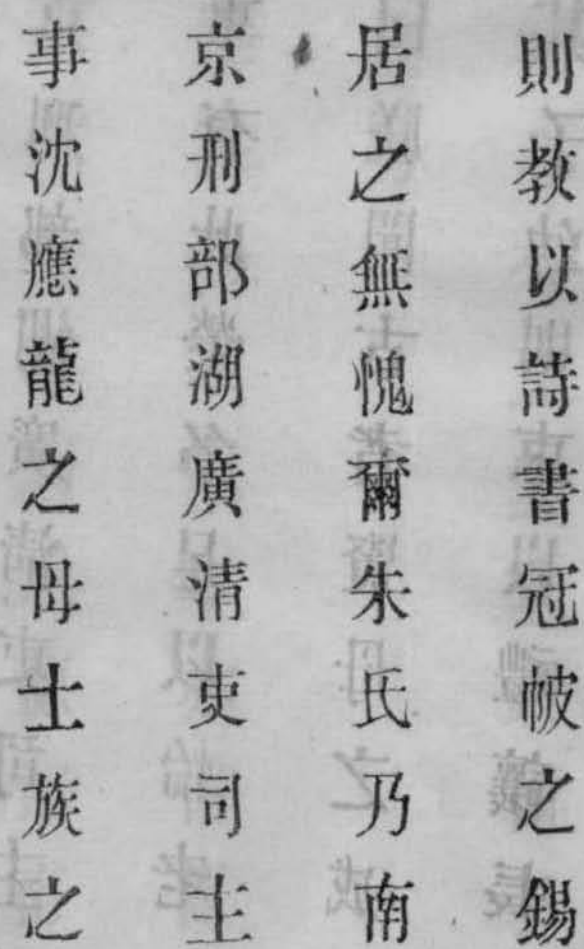 則教以詩書冠帔之錫
居之無愧爾朱氏乃南
京刑部湖廣清吏司主
事沈應龍之母士族之